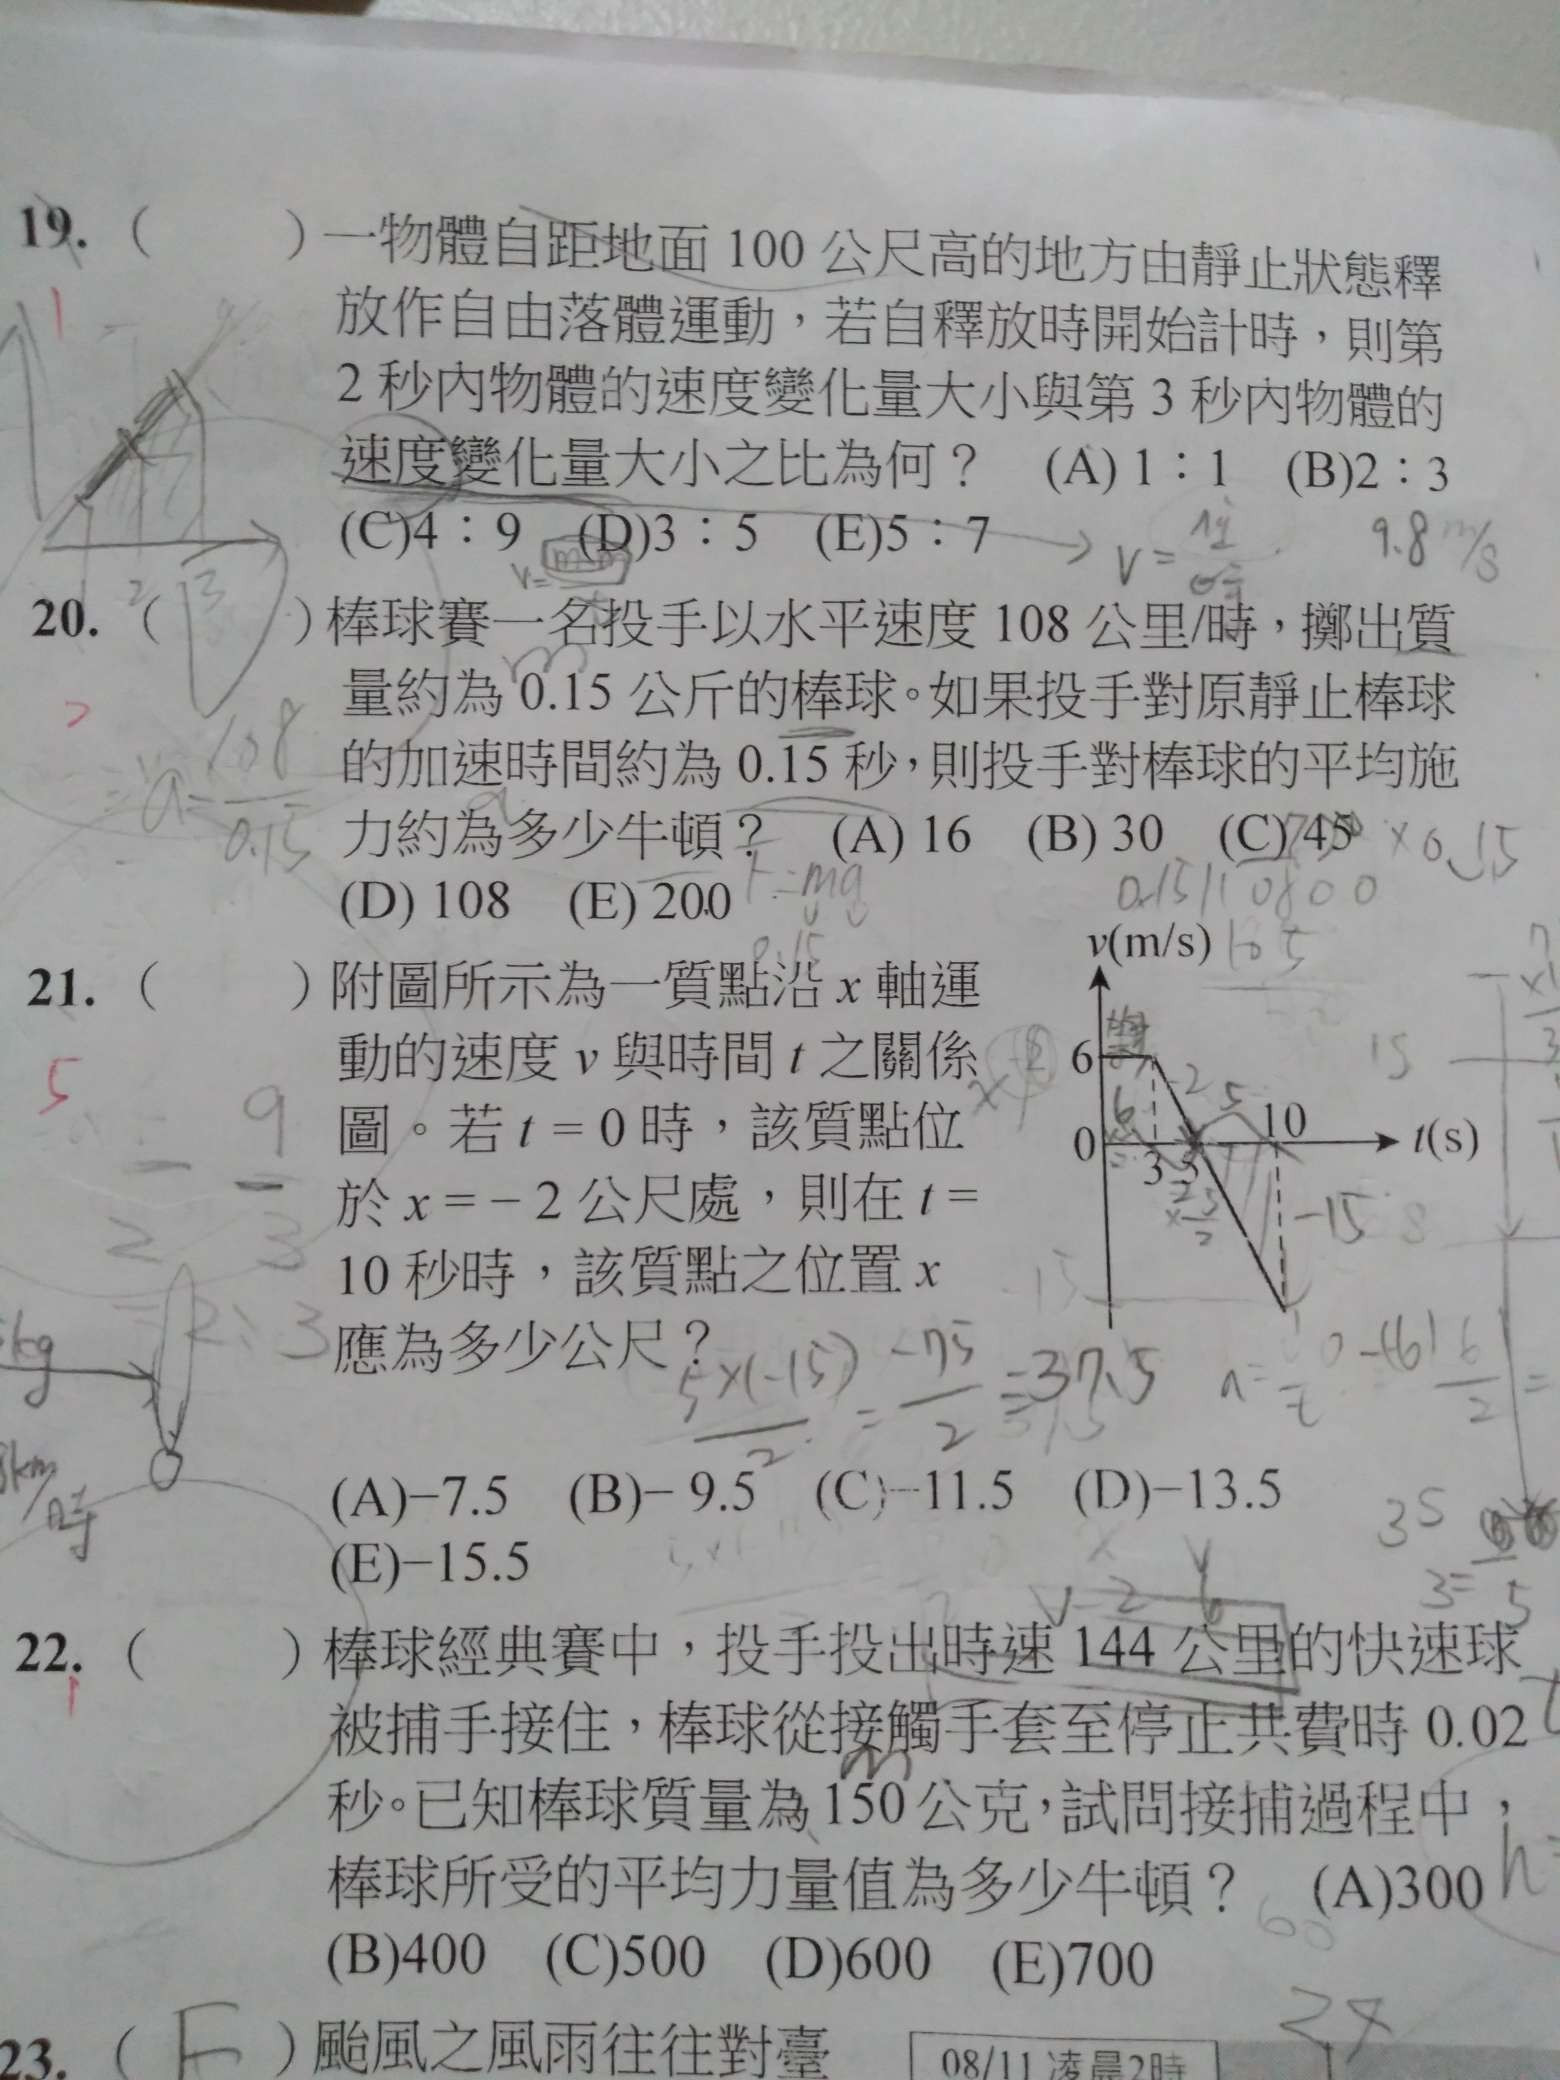 19. ( ) 一物體自距地面 100 公尺高的地方由靜止狀態釋
放作自由落體運動，若自釋放時開始計時，則第
2 秒內物體的速度變化量大小與第 3 秒內物體的
速度變化量大小之比為何？ (A) 1：1 (B)2：3
(C)4：9 (D)3：5 (E)5：7
9.8 m/s
20. ( ) 棒球賽一名投手以水平速度 108 公里/時，擲出質
量約為 0.15 公斤的棒球。如果投手對原靜止棒球
的加速時間約為 0.15 秒，則投手對棒球的平均施
力約為多少牛頓？ (A) 16 (B) 30 (C) 45
(D) 108 (E) 200
F=ma
21. ( ) 附圖所示為一質點沿 x 軸運
動的速度 v 與時間 t 之關係
圖。若 t = 0 時，該質點位
於 x = − 2 公尺處，則在 t =
10 秒時，該質點之位置 x
應為多少公尺？
v(m/s)
6
0
3
5
10
t(s)
-15
5×(-15)/2 = -75/2 = 37.5
(A)−7.5 (B)− 9.5 (C)−11.5 (D)−13.5
(E)−15.5
22. ( ) 棒球經典賽中，投手投出時速 144 公里的快速球
被捕手接住，棒球從接觸手套至停止共費時 0.02
秒。已知棒球質量為 150 公克，試問接捕過程中，
棒球所受的平均力量值為多少牛頓？ (A)300
(B)400 (C)500 (D)600 (E)700
23. ( E ) 颱風之風雨往往對臺
08/11 凌晨2時